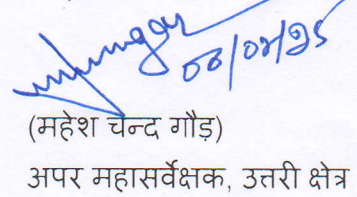 08/04/25
(महेश चन्द गौड़)
अपर महासर्वेक्षक, उत्तरी क्षेत्र